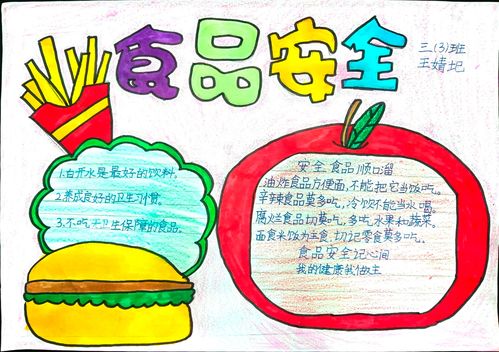 食品安全
三(3)班
王婧圯
1.白开水是最好的饮料,
2.养成良好的卫生习惯,
3.不吃无卫生保障的食品.
安全食品顺口溜
油炸食品方便面,不能把它当饭吃。
辛辣食品莫多吃,冷饮不能当水喝。
腐烂食品切莫吃,多吃水果和蔬菜。
面食米饭为主食,切记零食莫多吃。
食品安全记心间
我的健康我做主